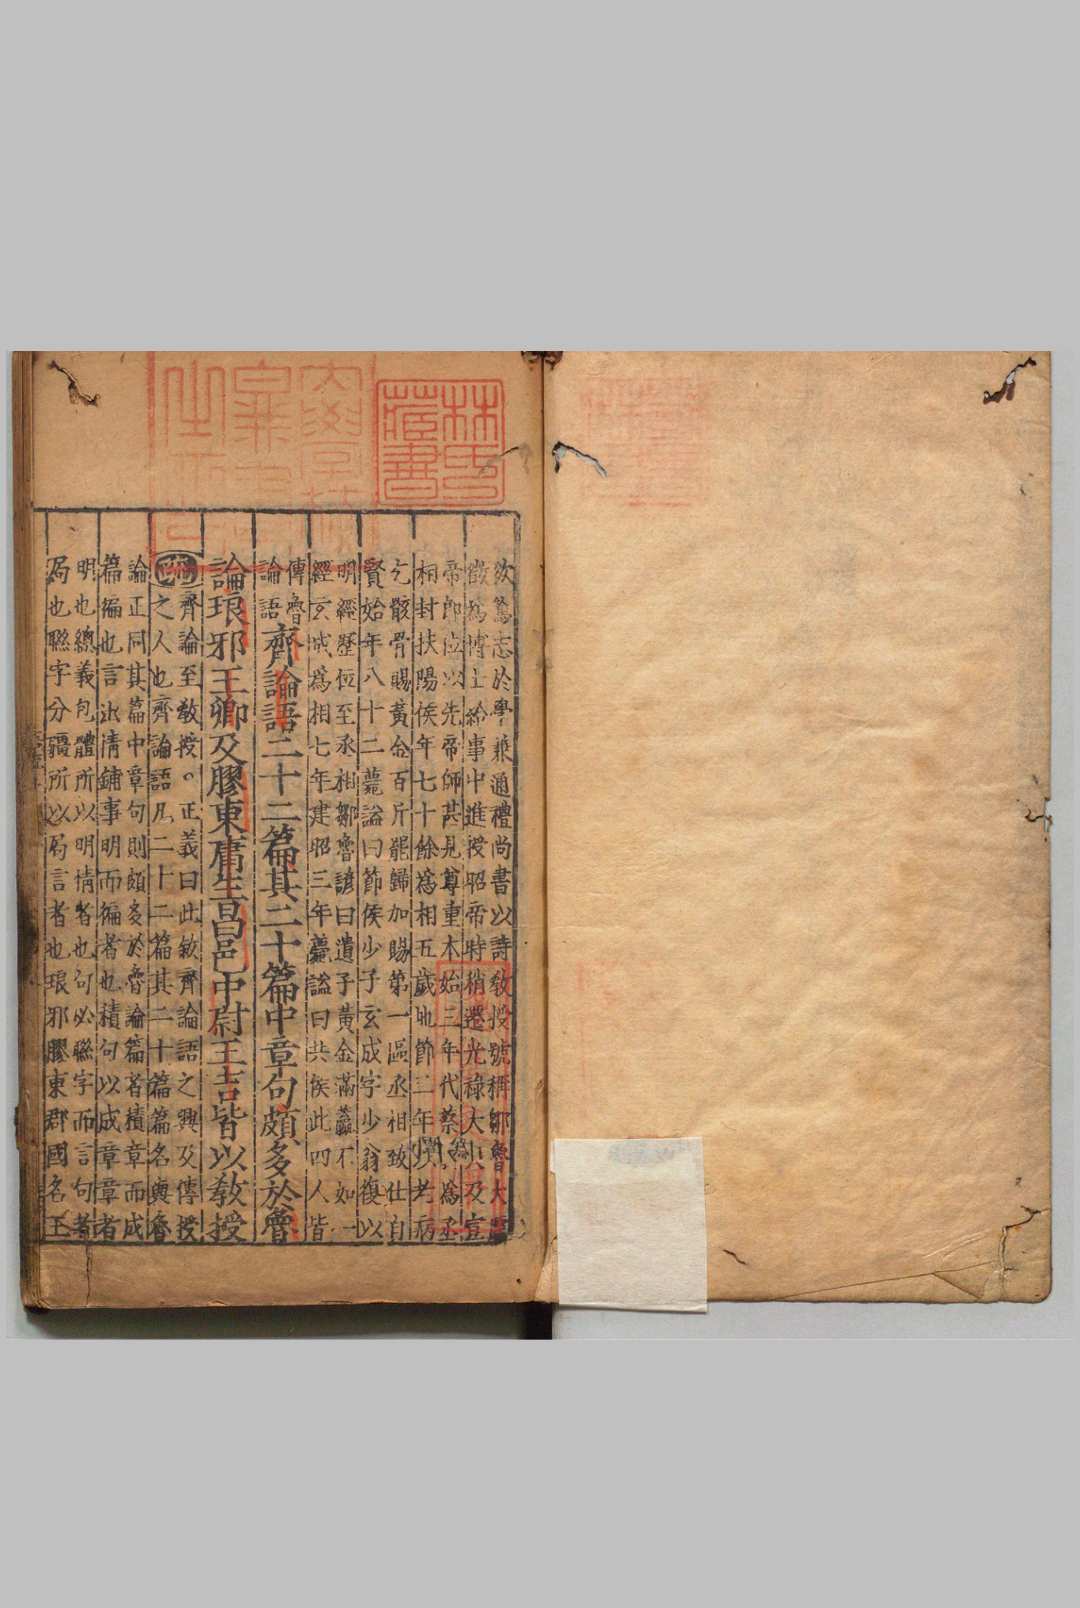 林氏
藏書
欲篤志於學兼通禮尚書以詩教授號稱鄒魯大儒
徵爲博士給事中進授昭帝詩稍遷光祿大夫及宣
帝即位以先帝師甚見尊重本始三年代蔡義爲丞
相封扶陽侯年七十餘爲相五歲地節三年以老病
乞骸骨賜黃金百斤罷歸加賜第一區丞相致仕自
賢始年八十二薨謚曰節侯少子玄成字少翁復以
明經歷位至丞相鄒魯諺曰遺子黃金滿籯不如一
經玄成爲相七年建昭三年薨謚曰共侯此四人皆
傳魯
論語
齊論語二十二篇其二十篇中章句頗多於魯
論琅邪王卿及膠東庸生昌邑中尉王吉皆以教授
疏齊論至教授。正義曰此敘齊論語之興及傳授
之人也齊論語凡二十二篇其二十篇篇名與魯
論正同其篇中章句則頗多於魯論篇者積章而成
篇徧也言出情鋪事明而徧者也積句以成章章者
明也總義包體所以明情者也句必聯字而言句者
局也聯字分疆所以局言者也琅邪膠東郡國名王